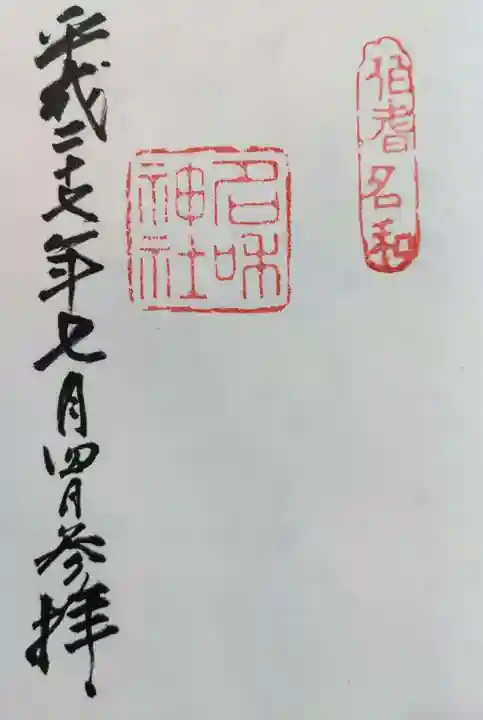 伯耆名和
名和
神社
平成二十七年七月四日参拝